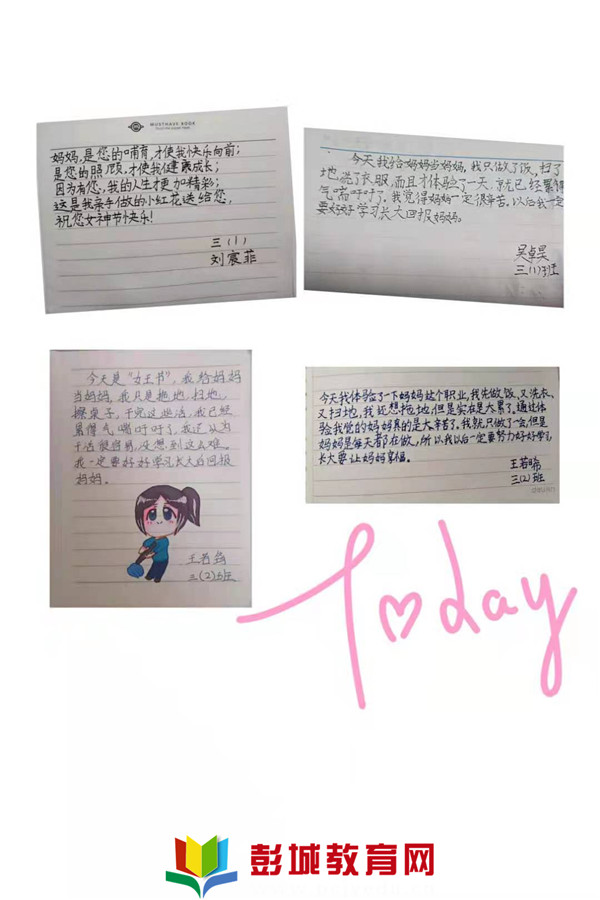 MUSTHAVE BOOK
妈妈,是您的哺育,才使我快乐向前;
是您的照顾,才使我健康成长;
因为有您,我的人生才更加精彩;
这是我亲手做的小红花送给您,
祝您女神节快乐!
三(1)
刘宸菲
今天我给妈妈当妈妈,我只做了饭,扫了
地,洗了衣服,而且才体验了一天,就已经累得
气喘吁吁了。我觉得妈妈一定很辛苦,以后我一定
要好好学习长大回报妈妈。
吴卓昊
三(1)班
今天是“女王节”,我给妈妈
当妈妈,我只是拖地,扫地,
擦桌子,干完这些活,我已经
累得气喘吁吁了,我还以为
干活挺容易,没想到这么难。
我一定要好好学习长大后回报
妈妈。
王若
三(2)班
今天我体验了一下妈妈这个职业,我先做饭、又洗衣、
又扫地,我还想拖地,但是实在是太累了,通过体
验我觉的妈妈真的是太辛苦了。我就只做了一会,但是
妈妈是每天都在做,所以我以后一定要努力好好学习
长大要让妈妈享福。
王若晞
三(2)班
Today
彭城教育网